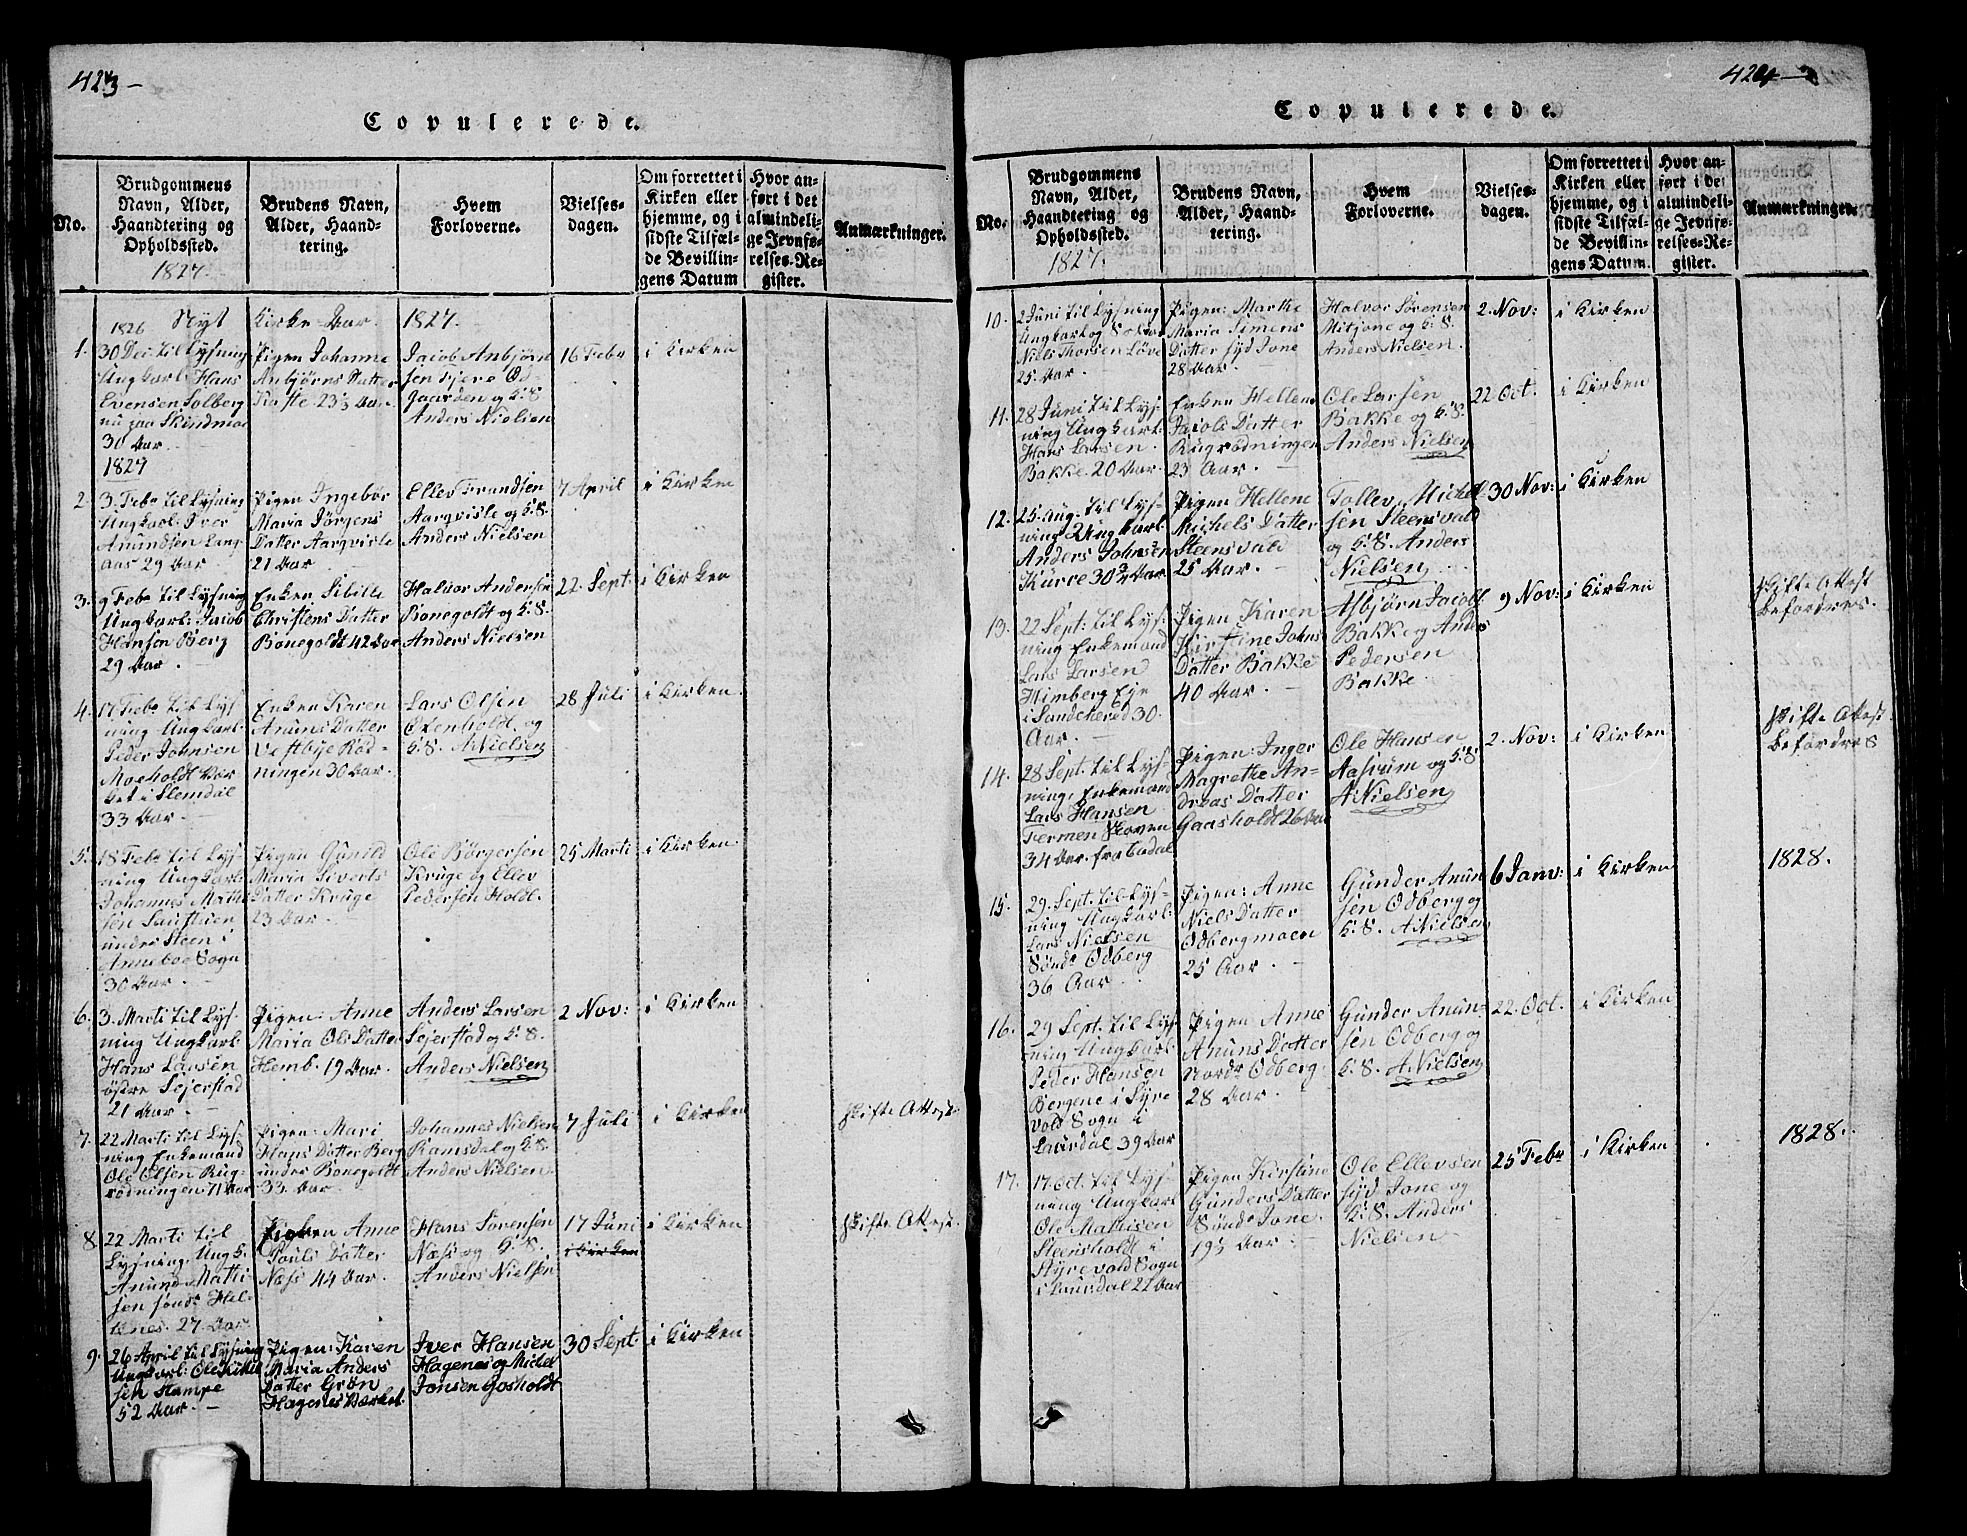 423 -
Copulerede.
No.
Brudgommens
Navn, Alder,
Haandtering og
Opholdssted.
1827.
Brudens Navn,
Alder, Haand-
tering.
Hvem
Forloverne.
Vielses-
dagen.
Om forrettet i
Kirken eller
hjemme, og i
sidste Tilfæl-
de Bevillin-
gens Datum
Hvor an-
ført i det
almindeli-
ge Jevnfø-
relses-Re-
gister.
Anmærkninger.
1826 Nyt Kirke-Aar. 1827.
1. 30 Dec: til Lysning
Ungkarl: Hans
Evensen Solberg
nu paa Skindmoe
30 Aar.
Pigen Johanne
Anbjørns Datter
23½ Aar.
Jacob Anbjørn
sen
og K:S.
Anders Nielsen
16 Febr
i Kirken
1827
2. 3. Febr til Lysning
Ungkarl: Iver
Anundsen Lang-
aas 29 Aar
Pigen Ingebor
Maria Jørgens
Datter Aargvisle
21 Aar
Ellev Frandsen
Aargvisle og K:S.
Anders Nielsen
7 April
i Kirken
3. 9 Febr til Lysning
Ungkarl: Jacob
Hansen Berg
29 Aar.
Enken Sibille
Christens Datter
Bonegoldt 42 Aar
Halvor Andersen
Bonegoldt og K:S.
Anders Nielsen
22 Sept:
i Kirken
4. 17 Febr til Lys-
ning Ungkarl:
Peder Johnsen
Moeholdt Vær
ket i Slemdal
33 Aar.
Enken Karen
Anuns Datter
Vestbye Rød-
ningen 30 Aar.
Lars Olsen
Oxenholdt og
K:S. A Nielsen
28 Juli
i Kirken
5. 18 Febr til Lys-
ning Ungkarl:
Johannes Mathi
sen
under Steen i
Anneboe Sogn
30 Aar.
Pigen Gunild
Maria Siverts
Datter Kruge
23 Aar.
Ole Børgersen
Kruge og Ellev
Pedersen Holdt.
25 Marti
i Kirken
6. 3. Marti til Lys-
ning Ungkarl
Hans Larsen
østre Sejerstad
21 Aar.
Pigen: Anne
Maria Ols Datter
Hemb. 19 Aar.
Anders Larsen
Sejerstad og K:S.
Anders Nielsen
2 Nov:
i Kirken
7. 22 Marti til Lys-
ning Enkemand
Ole Olsen Rug-
rødningen 71 Aar
Pigen: Mari
Hans Datter Berg
under Bonegoldt
33 Aar
Johannes Nielsen
Ramsdal og K:S.
Anders Nielsen
7 Juli
i Kirken
Skifte Attest.
8. 22 Marti til
Lysning Ungk.
Anund Mathi-
sen søndr Hel-
genes. 27 Aar
Anne
Pouls Datter
Næss 44 Aar.
Hans Sørensen
Næss og K:S.
Anders Nielsen
17 Juni
i Kirken
i Kirken
Skifte Attest.
9. 26 April til Lysning
Ungkarl: Ole
sen Stampe
52 Aar.
Pigen: Karen
Maria Anders
Datter Grøn
Hagenes Værket.
Iver Hansen
Hagenes og Michel
Jonsen Gosholdt
30 Sept.
i Kirken
424
Copulerede.
No.
Brudgommens
Navn, Alder,
Haandtering og
Opholdssted.
1827.
Brudens Navn,
Alder, Haand-
tering.
Hvem
Forloverne.
Vielses-
dagen.
Om forrettet i
Kirken eller
hjemme, og i
sidste Tilfæl-
de Bevillin-
gens Datum.
Hvor an-
ført i det
almindeli-
ge Jevnfø-
relses-Re-
gister.
Anmærkninger.
10. 2 Juni til Lysning
Ungkarl og
Niels Thorsen Løve
25. Aar
Pigen: Marthe
Maria Simens
Datter syd Jone
28 Aar.
Halvor Sørensen
Mitjone og K:S.
Anders Nielsen.
2. Nov:
i Kirken
11. 28 Juni til Lys-
ning Ungkarl:
Hans Larsen
Bakke 20 Aar.
Enken Hellene
Jacobs Datter
Rugrødningen
23 Aar.
Ole Larsen
Bakke og K:S.
Anders Nielsen
22 Oct.
i Kirken
12. 25 Aug. til Lys-
ning Ungkarl
Anders Johnsen
Kurre 30¾ Aar
Pigen Hellene
Michels Datter
Steensvald
25 Aar.
Tollev Michel
sen Steensvald
og K:S. Anders
Nielsen
30 Nov:
i Kirken
13. 22 Sept: til Lys-
ning Enkemand
Lars Larsen
Himberg Eje
i Sandeherred 30.
Aar.
Pigen: Karen
Kirstine Johns
Datter Bakke
40 Aar.
Asbjørn Jacobs
Bakke og Anders
Pedersen
Bakke
9 Nov:
i Kirken
Skifte Attest
befordres.
14. 28 Sept. til Lys-
ning: Enkemand
Lars Hansen
34 Aar. fra
Pigen: Inger
Magrethe An-
dreas Datter
Gaasholdt 26 Aar
Ole Hansen
Aasrum og K:S
A Nielsen
2. Nov:
i Kirken
Skifte Attest
befordres
15. 29. Sept. til Lys-
ning Ungkarl:
Lars Nielsen
Søndr Odberg
36 Aar.
Pigen: Anne
Niels Datter
Odbergmoen
25 Aar.
Gunder Anun
sen Odberg og
K:S. A Nielsen
6 Janv:
i Kirken
1828.
16. 29 Sept. til Lys-
ning Ungkarl
Peder Hansen
Bergene i Syre
vold Sogn i
Laurdal 39 Aar
Pigen Anne
Anuns Datter
Nordr Odberg
28 Aar.
Gunder Anun-
sen Odberg og
K:S. A Nielsen
22. Oct.
i Kirken
17. 17 Oct. til Lys-
ning Ungkarl
Ole Mathisen
Steensholdt i
Styrevold Sogn
i Laurdal 22 Aar
Pigen Kirstine
Gunders Datter
Sønde Jone.
19½ Aar
Ole Ellevsen
syd Jone og
K:S. Anders
Nielsen
25 Febr
i Kirken
1828.